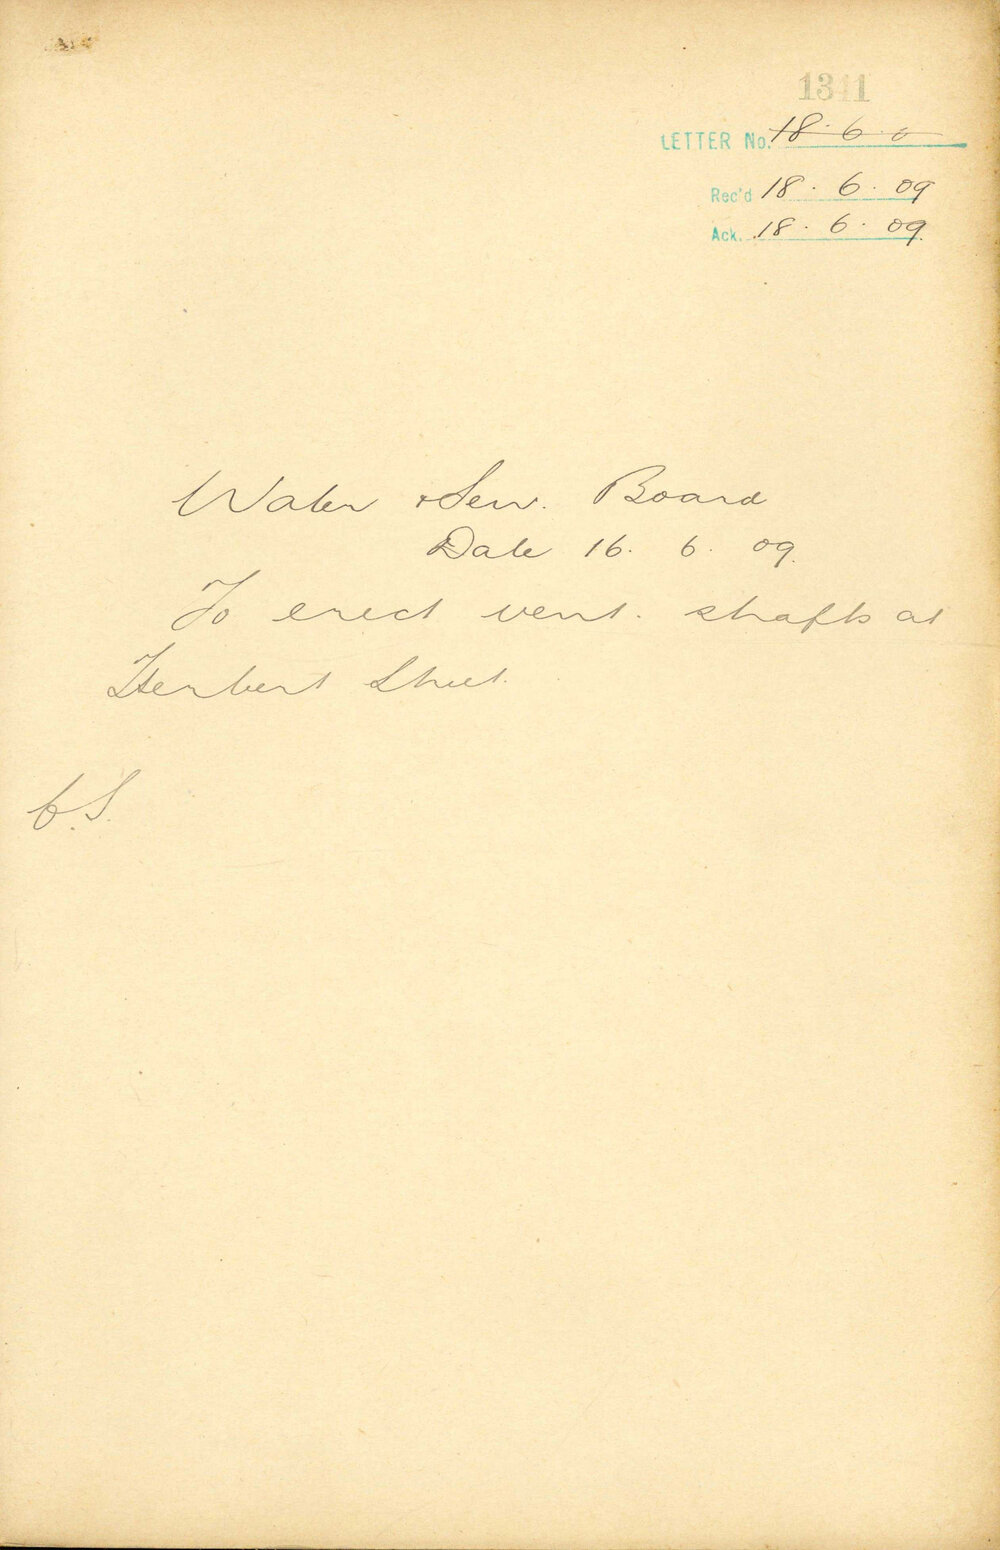 1311
LETTER No. 18.6.0
Rec'd 18.6.09
Ack. 18.6.09
Water & Sew. Board
Date 16.6.09.
To erect vent. shafts at
Herbert Street.
C.S.